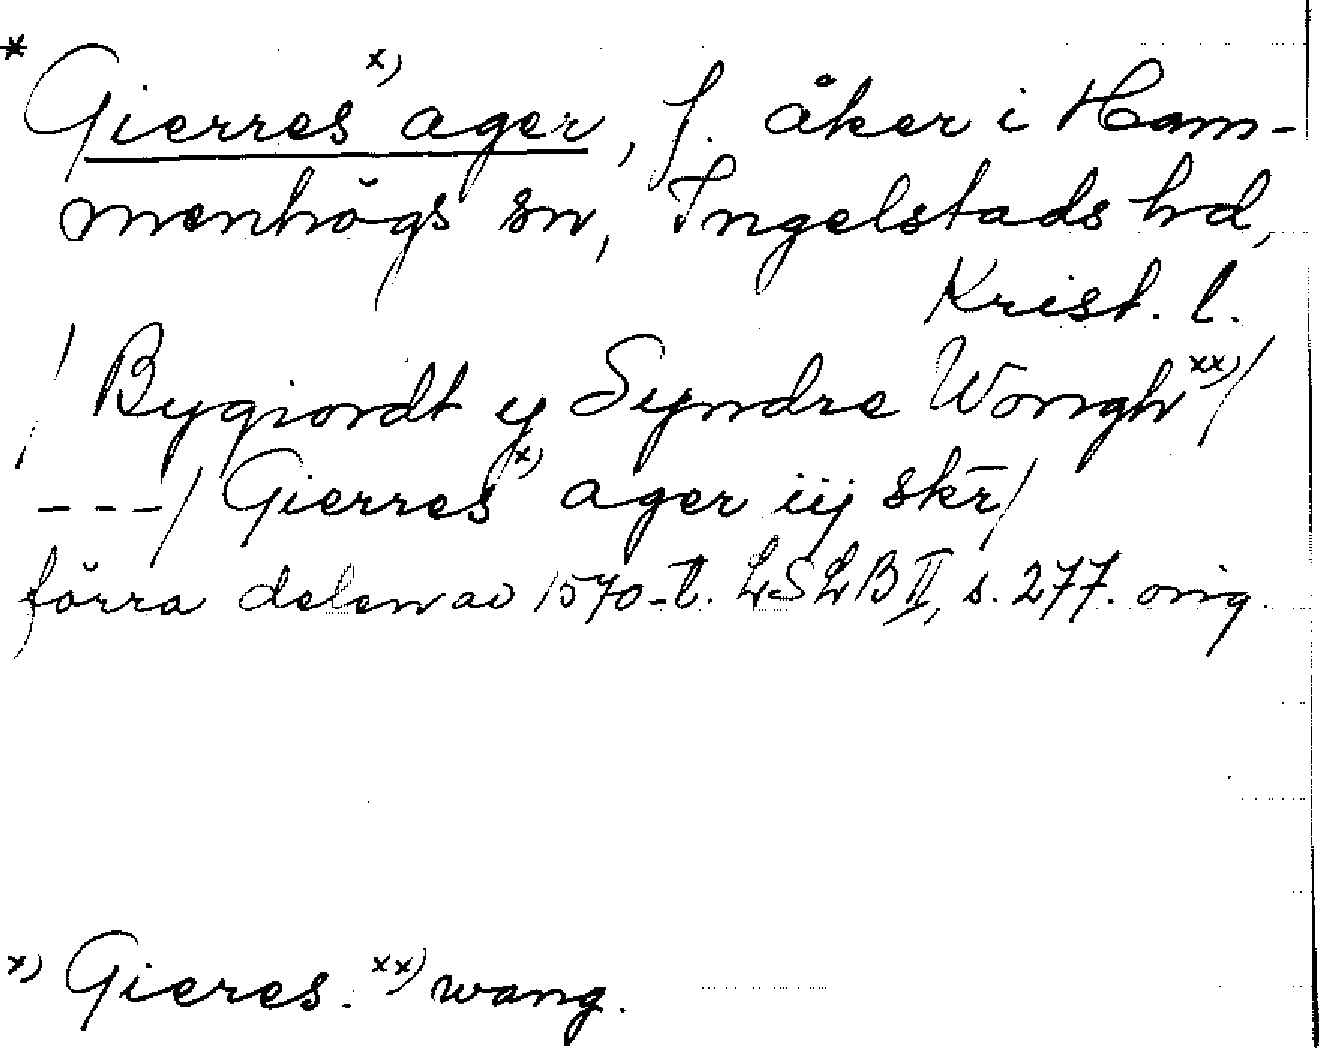 * Gierres x) ager, f. åker i Ham-
menhögs sn, Ingelstads hd,
Krist. l.
/ Bygiordt y Syndre Wongh xx) /
---/ Gierres x) ager iij skr̄/
förra delen av 1570-t. LSLB II, s. 277. orig.
x) Gieres. xx) wang.